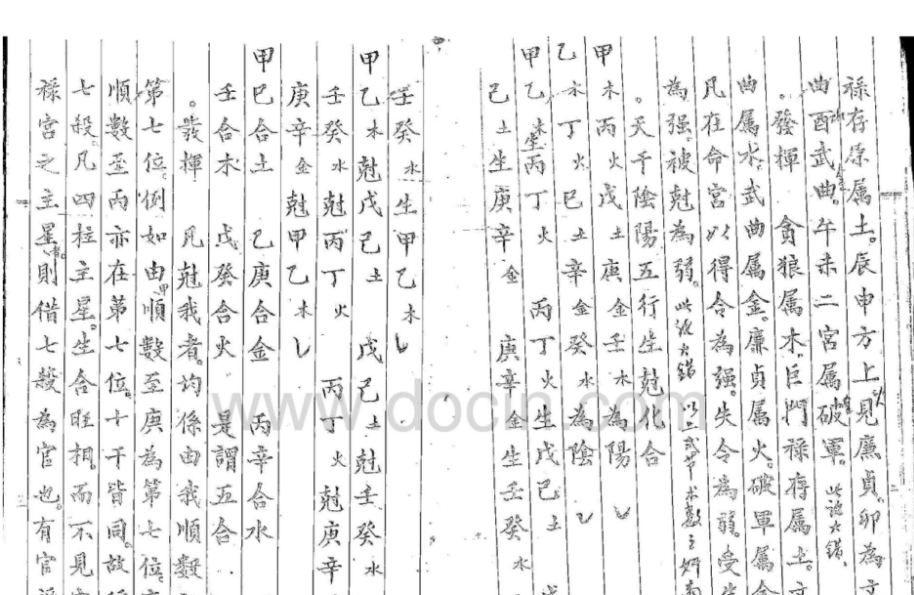 禄存原属土。辰申方上見廉貞。卯為文
曲酉武曲。午未二宮属破軍。此說大錯.
。發揮 貪狼属木。巨門禄存属土。文
曲属水。武曲属金。廉貞属火。破軍属金
凡在命宮以得令為强。失令為弱。受生
為强。被尅為弱。此說大錯
。天干陰陽五行生尅化合
甲木丙火戊土庚金壬水為陽
乙木丁火己土辛金癸水為陰
甲乙木生丙丁火 丙丁火生戊己土 戊
己土生庚辛金 庚辛金生壬癸水
壬癸水生甲乙木
甲乙木尅戊己土 戊己土尅壬癸水
壬癸水尅丙丁火 丙丁火尅庚辛
庚辛金尅甲乙木
甲己合土 乙庚合金 丙辛合水
丁壬合木 戊癸合火 是謂五合
。發揮 凡尅我者。均係由我順數
第七位。例如由甲順數至庚為第七位。
順數至丙亦在第七位。十干皆同。故
七殺。凡四柱主星。生合旺相。而不見
禄宮之主星。則借七殺為官也。有官
www.docin.com